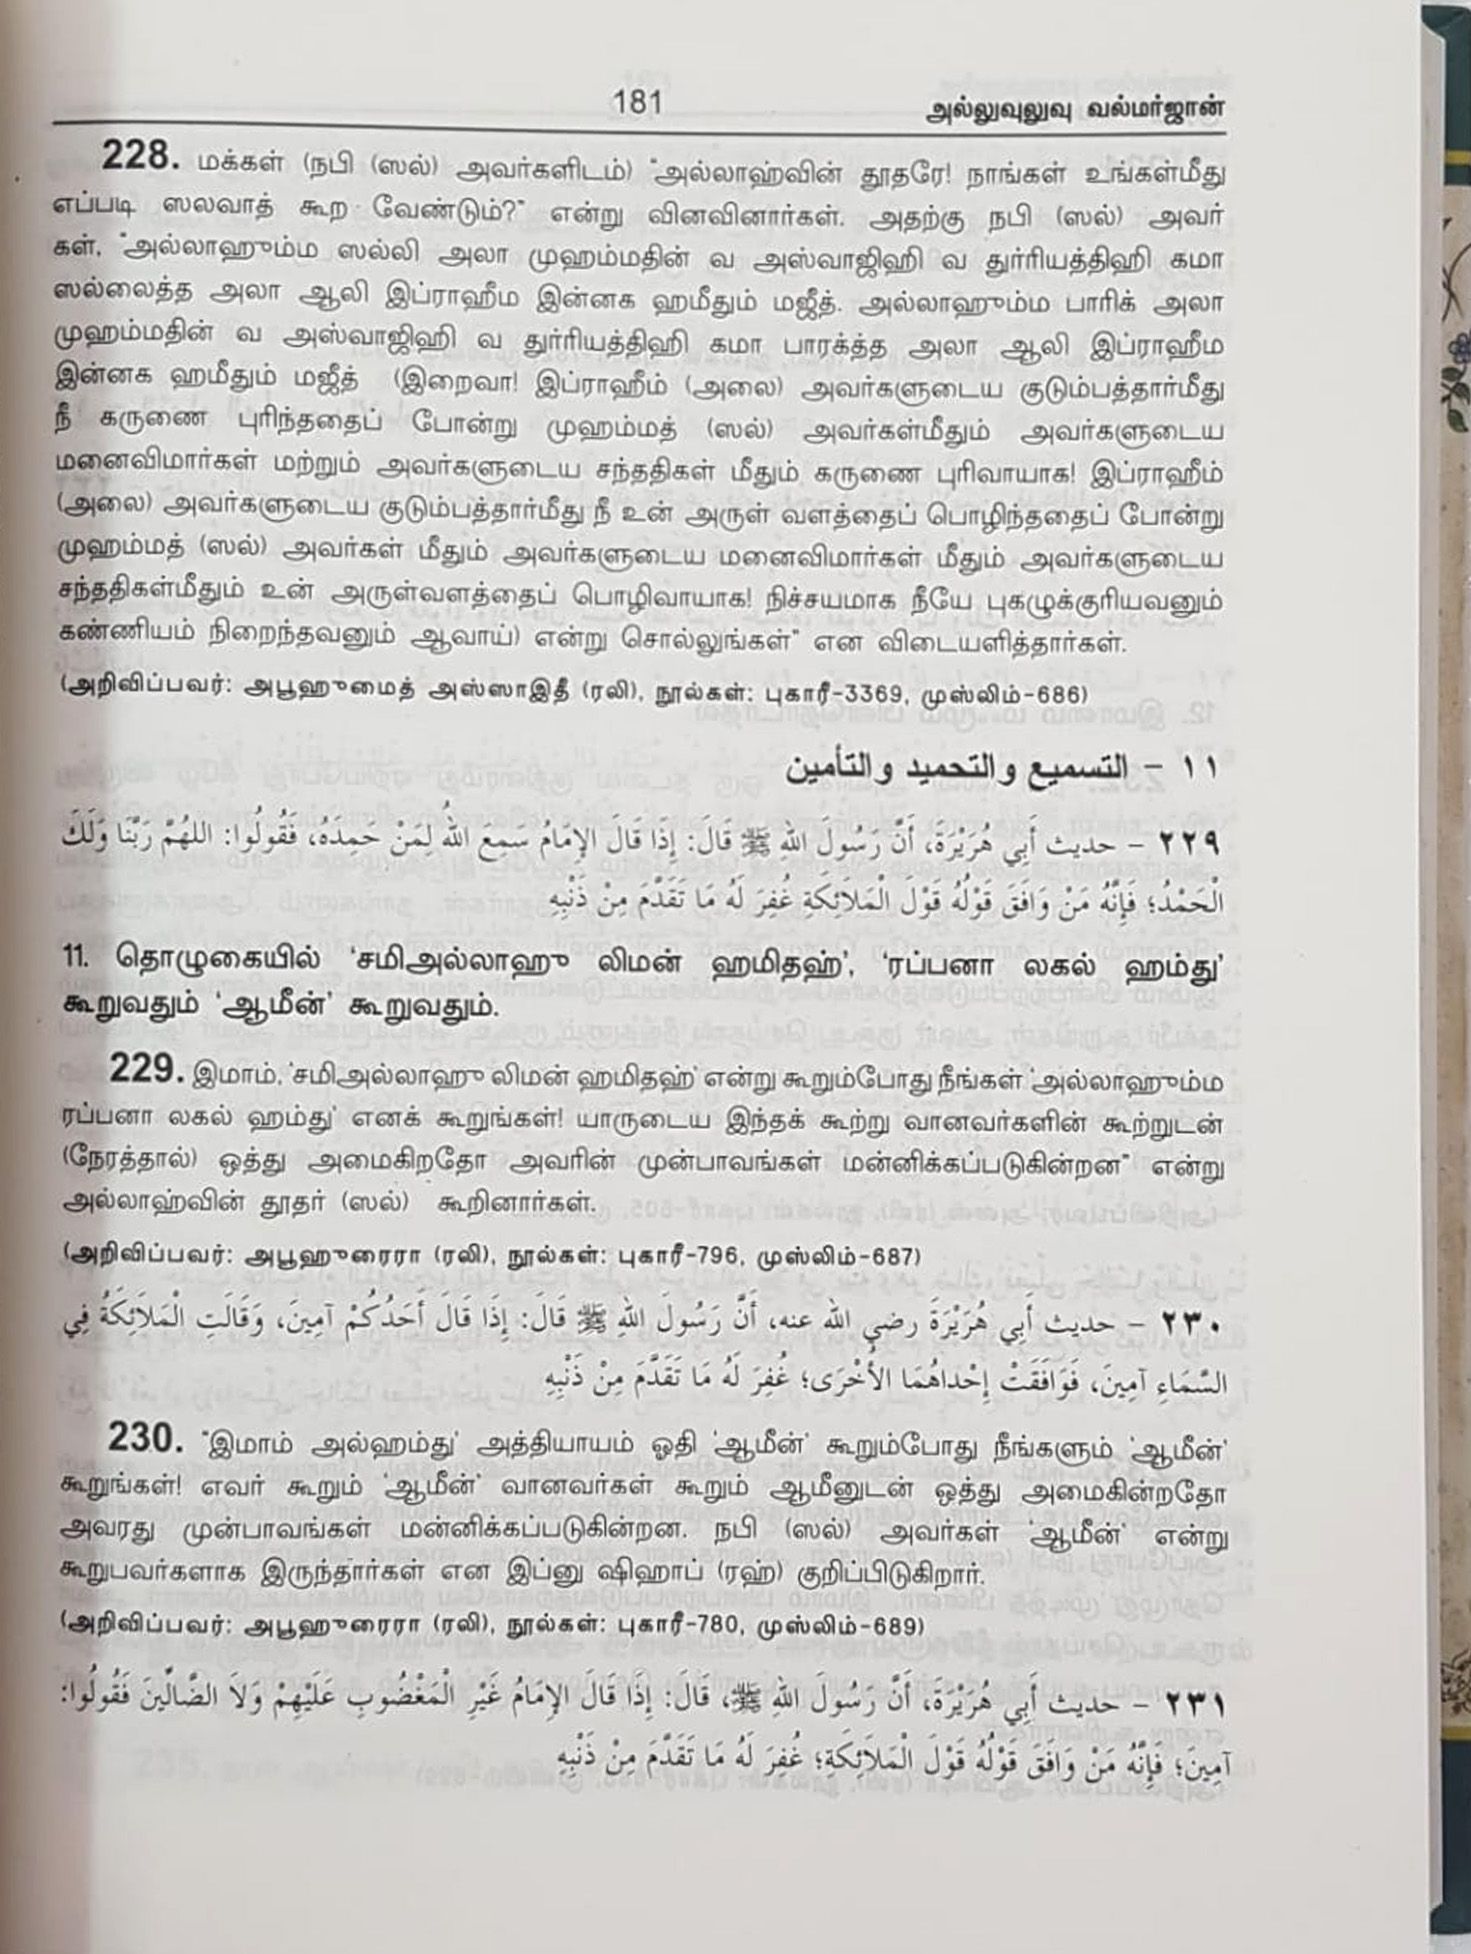 181 அல்லுவுலுவு வல்மர்ஜான்
228. மக்கள் (நபி (ஸல்) அவர்களிடம்) "அல்லாஹ்வின் தூதரே! நாங்கள் உங்கள்மீது
எப்படி ஸலவாத் கூற வேண்டும்?" என்று வினவினார்கள். அதற்கு நபி (ஸல்) அவர்
கள், "அல்லாஹும்ம ஸல்லி அலா முஹம்மதின் வ அஸ்வாஜிஹி வ துர்ரியத்திஹி கமா
ஸல்லைத்த அலா ஆலி இப்ராஹீம இன்னக ஹமீதும் மஜீத். அல்லாஹும்ம பாரிக் அலா
முஹம்மதின் வ அஸ்வாஜிஹி வ துர்ரியத்திஹி கமா பாரக்த்த அலா ஆலி இப்ராஹீம
இன்னக ஹமீதும் மஜீத் (இறைவா! இப்ராஹீம் (அலை) அவர்களுடைய குடும்பத்தார்மீது
நீ கருணை புரிந்ததைப் போன்று முஹம்மத் (ஸல்) அவர்கள்மீதும் அவர்களுடைய
மனைவிமார்கள் மற்றும் அவர்களுடைய சந்ததிகள் மீதும் கருணை புரிவாயாக! இப்ராஹீம்
(அலை) அவர்களுடைய குடும்பத்தார்மீது நீ உன் அருள் வளத்தைப் பொழிந்ததைப் போன்று
முஹம்மத் (ஸல்) அவர்கள் மீதும் அவர்களுடைய மனைவிமார்கள் மீதும் அவர்களுடைய
சந்ததிகள்மீதும் உன் அருள்வளத்தைப் பொழிவாயாக! நிச்சயமாக நீயே புகழுக்குரியவனும்
கண்ணியம் நிறைந்தவனும் ஆவாய்) என்று சொல்லுங்கள்" என விடையளித்தார்கள்.
(அறிவிப்பவர்: அபூஹுமைத் அஸ்ஸாஇதீ (ரலி), நூல்கள்: புகாரீ-3369, முஸ்லிம்-686)
١١ - التسميع والتحميد والتأمين
٢٢٩ - حديث أَبِي هُرَيْرَةَ، أَنَّ رَسُولَ اللهِ ﷺ قَالَ: إِذَا قَالَ الإِمَامُ سَمِعَ اللهُ لِمَنْ حَمِدَهُ، فَقُولُوا: اللهُمَّ رَبَّنَا وَلَكَ
الْحَمْدُ؛ فَإِنَّهُ مَنْ وَافَقَ قَوْلُهُ قَوْلَ الْمَلَائِكَةِ غُفِرَ لَهُ مَا تَقَدَّمَ مِنْ ذَنْبِهِ
11. தொழுகையில் 'சமிஅல்லாஹு லிமன் ஹமிதஹ்', 'ரப்பனா லகல் ஹம்து'
கூறுவதும் 'ஆமீன்' கூறுவதும்.
229. இமாம், 'சமிஅல்லாஹு லிமன் ஹமிதஹ்' என்று கூறும்போது நீங்கள் 'அல்லாஹும்ம
ரப்பனா லகல் ஹம்து' எனக் கூறுங்கள்! யாருடைய இந்தக் கூற்று வானவர்களின் கூற்றுடன்
(நேரத்தால்) ஒத்து அமைகிறதோ அவரின் முன்பாவங்கள் மன்னிக்கப்படுகின்றன" என்று
அல்லாஹ்வின் தூதர் (ஸல்) கூறினார்கள்.
(அறிவிப்பவர்: அபூஹுரைரா (ரலி), நூல்கள்: புகாரீ-796, முஸ்லிம்-687)
٢٣٠ - حديث أَبِي هُرَيْرَةَ رضي الله عنه، أَنَّ رَسُولَ اللهِ ﷺ قَالَ: إِذَا قَالَ أَحَدُكُمْ آمِينَ، وَقَالَتِ الْمَلَائِكَةُ فِي
السَّمَاءِ آمِينَ، فَوَافَقَتْ إِحْدَاهُمَا الأُخْرَى؛ غُفِرَ لَهُ مَا تَقَدَّمَ مِنْ ذَنْبِهِ
230. "இமாம் அல்ஹம்து' அத்தியாயம் ஓதி 'ஆமீன்' கூறும்போது நீங்களும் 'ஆமீன்'
கூறுங்கள்! எவர் கூறும் 'ஆமீன்' வானவர்கள் கூறும் ஆமீனுடன் ஒத்து அமைகின்றதோ
அவரது முன்பாவங்கள் மன்னிக்கப்படுகின்றன. நபி (ஸல்) அவர்கள் 'ஆமீன்' என்று
கூறுபவர்களாக இருந்தார்கள் என இப்னு ஷிஹாப் (ரஹ்) குறிப்பிடுகிறார்.
(அறிவிப்பவர்: அபூஹுரைரா (ரலி), நூல்கள்: புகாரீ-780, முஸ்லிம்-689)
٢٣١ - حديث أَبِي هُرَيْرَةَ، أَنَّ رَسُولَ اللهِ ﷺ، قَالَ: إِذَا قَالَ الإِمَامُ غَيْرِ الْمَغْضُوبِ عَلَيْهِمْ وَلَا الضَّالِّينَ فَقُولُوا:
آمِينَ؛ فَإِنَّهُ مَنْ وَافَقَ قَوْلُهُ قَوْلَ الْمَلَائِكَةِ؛ غُفِرَ لَهُ مَا تَقَدَّمَ مِنْ ذَنْبِهِ